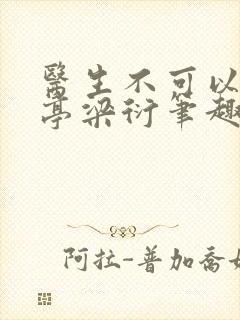 醫生不可以
亭梁衍筆趣
阿拉-普加喬